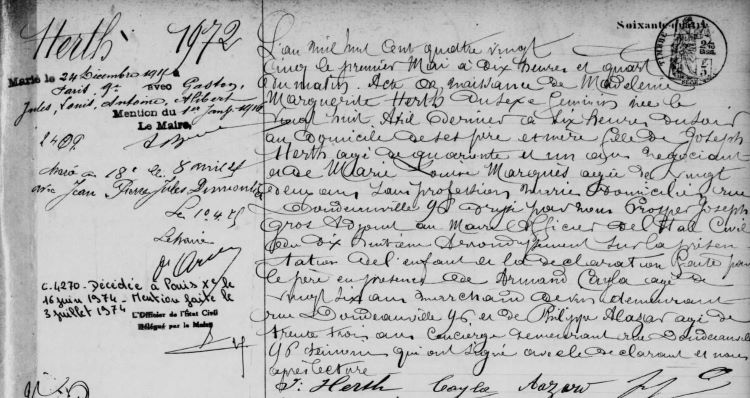 Soixante quatre
Herth 1972
Marié le 24 Décembre
Paris, 9e avec Gaston,
Jules, Louis, Antoine, Alibert
Mention du 1er Janv. 1916
Le Maire,
Marié à 18e le 8 avril 25
avec Jean Pierre Jules
Le 10 4 25
Le Maire
C.1270 - Décédée à Paris Xe le
16 juin 1974 - Mention faite le
3 juillet 1974
L'Officier de l'État Civil
Délégué par le Maire
L'an mil huit cent quatre vingt
cinq le premier Mai à dix heures et quart
du matin. Acte de naissance de Madeleine
Marguerite Herth du sexe féminin née le
vingt huit Avril dernier à six heures du soir
au domicile de ses père et mère fille de Joseph
Herth agé de quarante et un ans négociant
et de Marie Louise Marquès agée de vingt
deux ans sans profession mariés domiciliés rue
Doudeauville 96 Dressé par nous Prosper Joseph
Gros Adjoint au Maire Officier de l'Etat Civil
du Dix huitième Arrondissement sur la présen
tation de l'enfant et la déclaration faite par
le père en présence de Armand Cayla agé de
vingt six ans marchand de vin demeurant
rue Doudeauville 96 et de Philippe Alazar agé de
trente trois ans concierge demeurant rue Doudeauville
96 témoins qui ont signé avec le déclarant et nous
après lecture
J. Herth Cayla